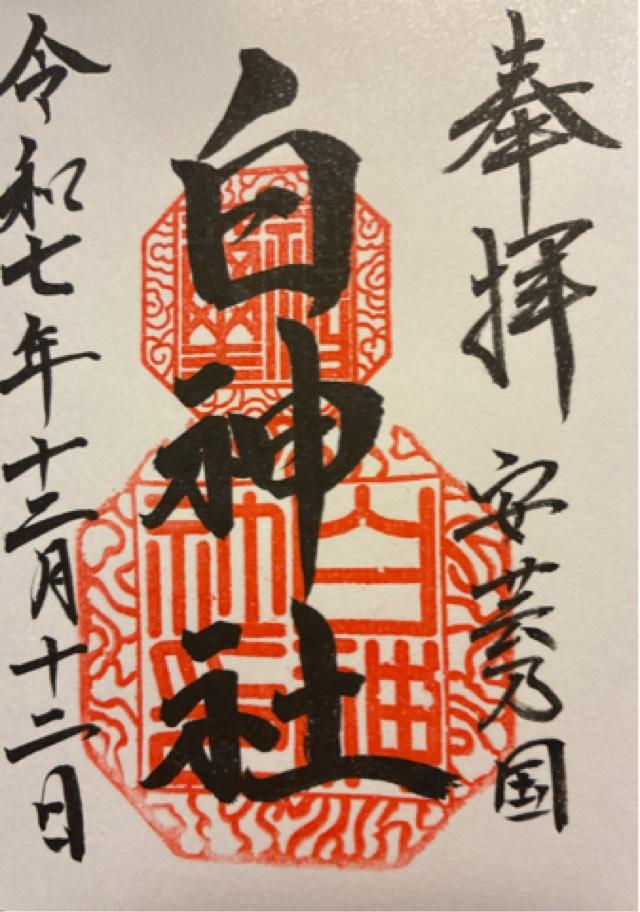 奉拝 安芸乃国
白神社
令和七年十二月十二日